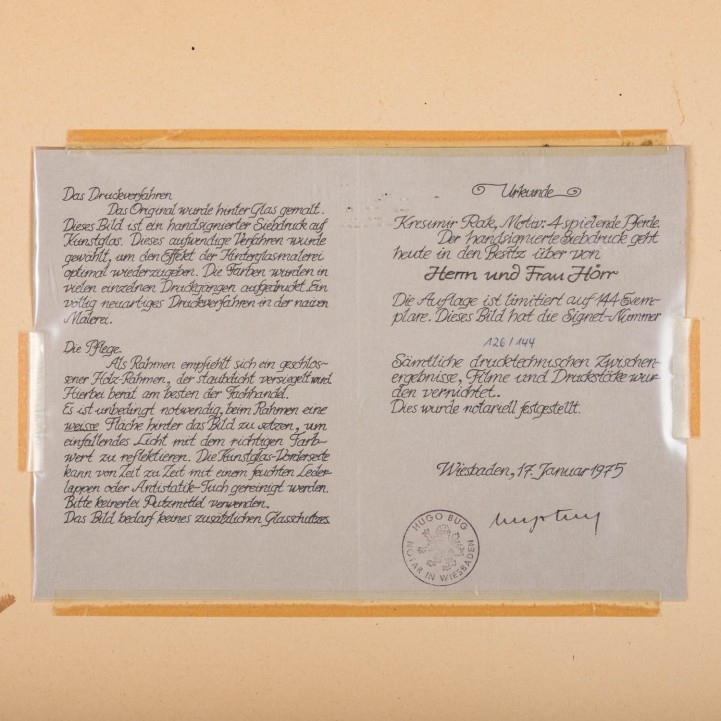 Das Druckverfahren
Das Original wurde hinter Glas gemalt.
Dieses Bild ist ein handsignierter Siebdruck auf
Kunstglas. Dieses aufwendige Verfahren wurde
gewählt, um den Effekt der Hinterglasmalerei
optimal wiederzugeben. Die Farben wurden in
vielen einzelnen Druckgängen aufgedruckt. Ein
völlig neuartiges Druckverfahren in der naiven
Malerei.
Die Pflege.
Als Rahmen empfiehlt sich ein geschlos-
sener Holz-Rahmen, der staubdicht versiegelt wird.
Hierbei berät am besten der Fachhandel.
Es ist unbedingt notwendig, beim Rahmen eine
weisse Fläche hinter das Bild zu setzen, um
einfallendes Licht mit dem richtigen Farb-
wert zu reflektieren. Die Kunstglas-Vorderseite
kann von Zeit zu Zeit mit einem feuchten Leder-
lappen oder Antistatik-Tuch gereinigt werden.
Bitte keinerlei Putzmittel verwenden.
Das Bild bedarf keines zusätzlichen Glasschutzes.
Urkunde
Kresimir Rak, Motiv: 4 spielende Pferde.
Der handsignierte Siebdruck geht
heute in den Besitz über von
Herrn und Frau Hörr
Die Auflage ist limitiert auf 144 Exem-
plare. Dieses Bild hat die Signet-Nummer
126/144
Sämtliche drucktechnischen Zwischen-
ergebnisse, Filme und Druckstöcke wur-
den vernichtet.
Dies wurde notariell festgestellt.
Wiesbaden, 17. Januar 1975
HUGO BUG
NOTAR IN WIESBADEN